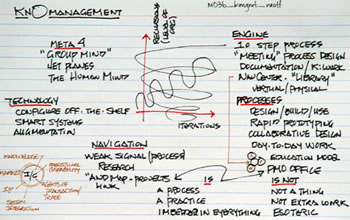 KNOMANAGEMENT
META 4
"GROUP MIND"
NET PLANES
THE HUMAN MIND
RECURSIONS
(LEVEL OF
ORG)
ITERATIONS
ENGINE
10 STEP PROCESS
"MEETING" PROCESS DESIGN
DOCUMENTATION / K. WORK
NAVCENTER - "LIBRARY"
VIRTUAL/PHYSICAL
PROCESSES
DESIGN/BUILD/USE
RAPID PROTOTYPING
COLLABORATIVE DESIGN
DAY-TO-DAY WORK
EDUCATION MODEL
PMO OFFICE
TECHNOLOGY
CONFIGURE OFF-THE-SHELF
SMART SYSTEMS
AUGMENTATION
NAVIGATION
WEAK SIGNAL/PROCESS/
RESEARCH
"AND MAP - PROJECTS
LINK"
IS
A PROCESS
A PRACTICE
IMBEDED IN EVERYTHING
IS NOT
NOT A THING
NOT EXTRA WORK
ESOTERIC